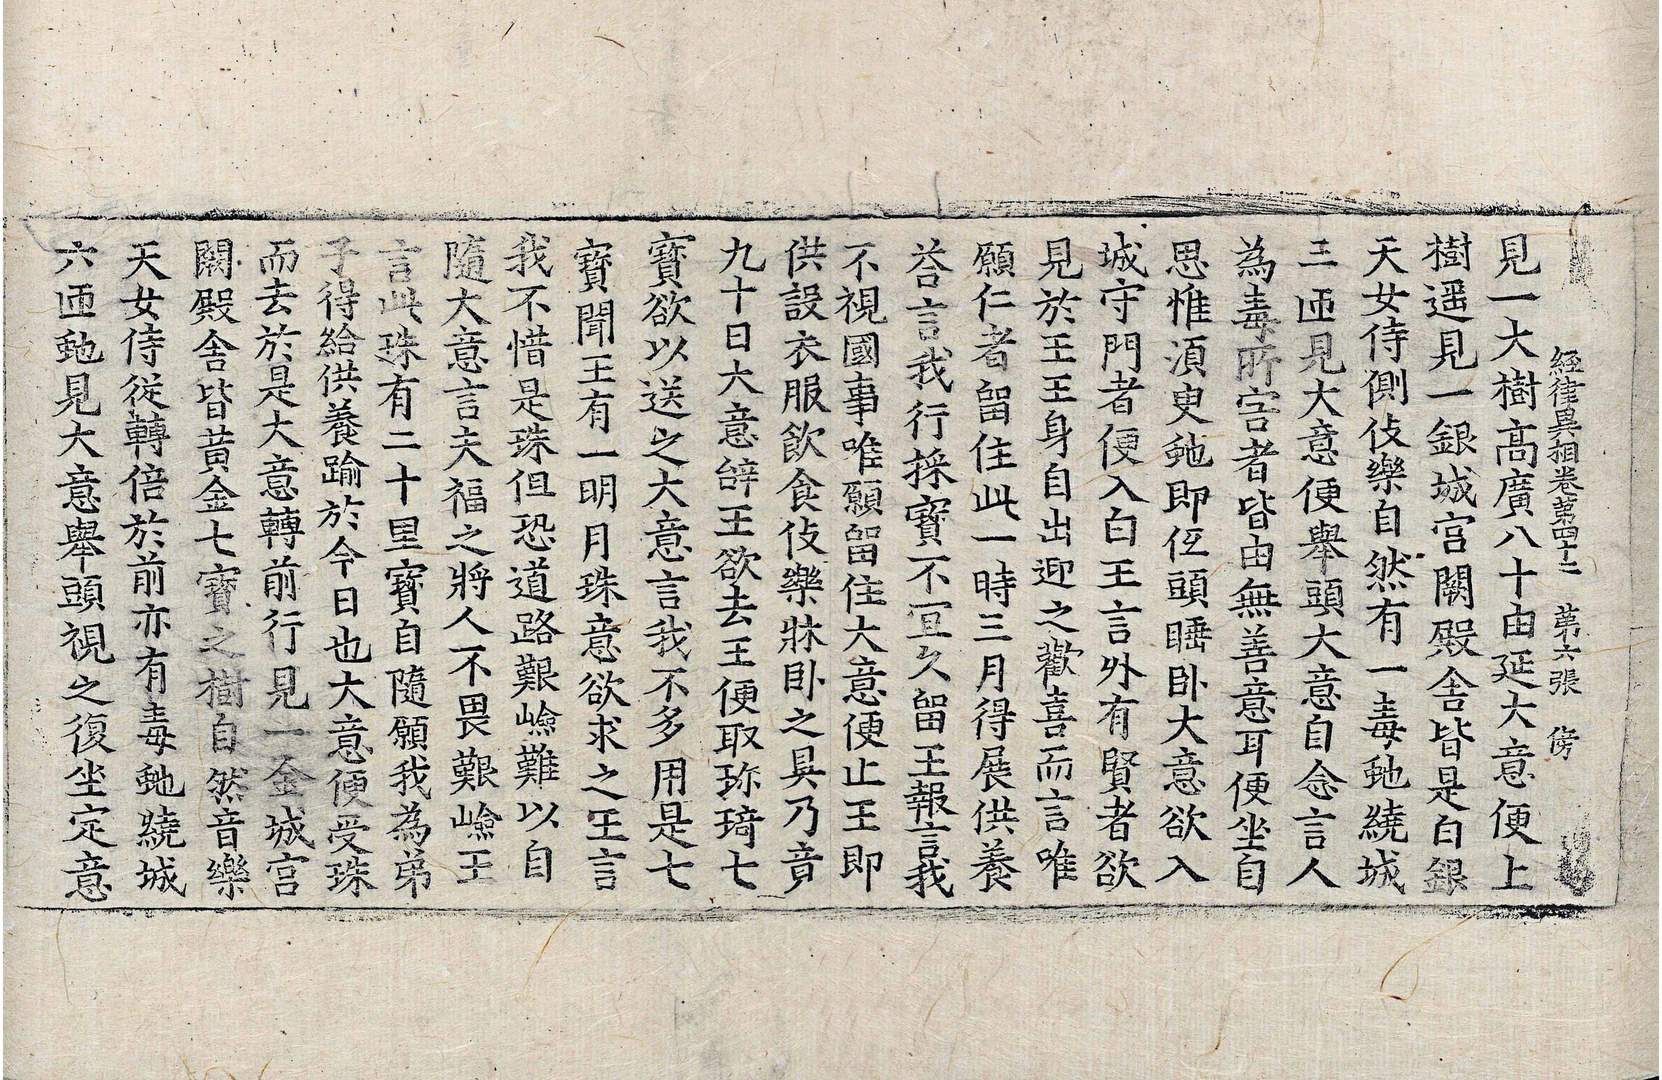 經律異相卷第四十二 第六張 傍
見一大樹高廣八十由延大意便上
樹遥見一銀城宫闕殿舍皆是白銀
天女侍側伎樂自然有一毒虵繞城
三匝見大意便舉頭大意自念言人
為毒所害者皆由無善意耳便坐自
思惟湏臾虵即伍頭睡卧大意欲入
城守門者便入白王言外有賢者欲
見於王王身自出迎之歡喜而言唯
願仁者留住此一時三月得展供養
荅言我行採寳不冝久留王報言我
不視國事唯願留住大意便止王即
供設衣服飲食伎樂牀卧之具乃竟
九十日大意辝王欲去王便取珎琦七
寳欲以送之大意言我不多用是七
寳聞王有一明月珠意欲求之王言
我不惜是珠但恐道路艱嶮難以自
隨大意言夫福之將人不畏艱嶮王
言此珠有二十里寳自隨願我為弟
子得給供養踰於今日也大意便受珠
而去於是大意轉前行見一金城宫
闕殿舍皆黄金七寳之樹自然音樂
天女侍從轉倍於前亦有毒虵繞城
六匝虵見大意舉頭視之復坐定意